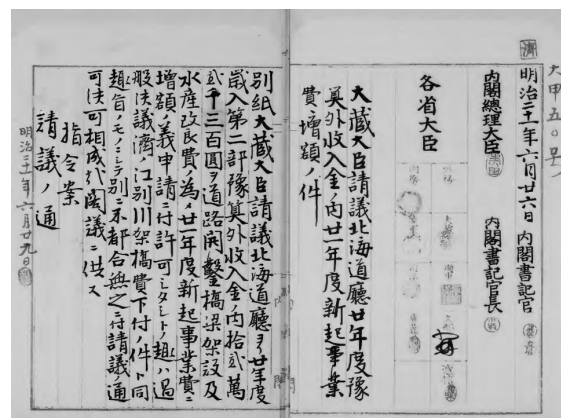 大甲五〇号
明治二十一年六月廿六日 内閣書記官
内閣總理大臣 内閣書記官長
各省大臣
大蔵大臣請議北海道廳廿年度豫
算外收入金ノ内廿一年度新起事業
費ニ増額ノ件
別紙大蔵大臣請議北海道廳ヨリ廿年度
歳入第二部豫算外收入金ノ内拾貳萬
貳千三百圓ヲ道路開鑿橋梁架設及
水産改良費ノ為メ廿一年度新起事業費ニ
増額ノ義申請ニ付許可シタシトノ趣ハ過
般決議濟ノ江別川架橋費下付ノ件ト同
趣旨ノモノニシテ別ニ不都合無之ニ付請議ノ通
可決可相成乎閣議ニ供ス
指令案
請議ノ通
明治二十一年六月廿九日